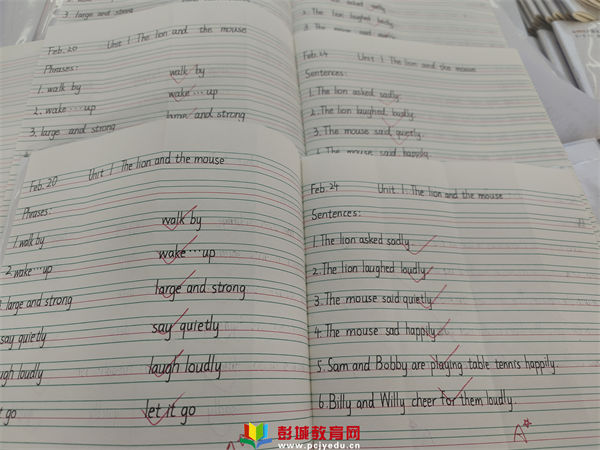 3. large and strong
2. The lion laughed loudly
Feb. 20 Unit 1 The lion and the mouse
Phrases:
1. walk by walk by
2. wake…up wake…up
3. large and strong large and strong
Feb. 24 Unit 1 The lion and the mouse
Sentences:
1. The lion asked sadly.
2. The lion laughed loudly.
3. The mouse said quietly.
4. The mouse said happily.
Feb. 20 Unit 1 The lion and the mouse
Phrases:
1. walk by walk by
2. wake…up wake…up
large and strong large and strong
say quietly say quietly
laugh loudly
let it go
Feb. 24 Unit 1 The lion and the mouse
Sentences:
1. The lion asked sadly.
2. The lion laughed loudly.
3. The mouse said quietly.
4. The mouse sad happily.
5. Sam and Bobby are playing table tennis happily.
6. Billy and Willy cheer for them loudly.
A☆
彭城教育网
www.pcjyedu.cn